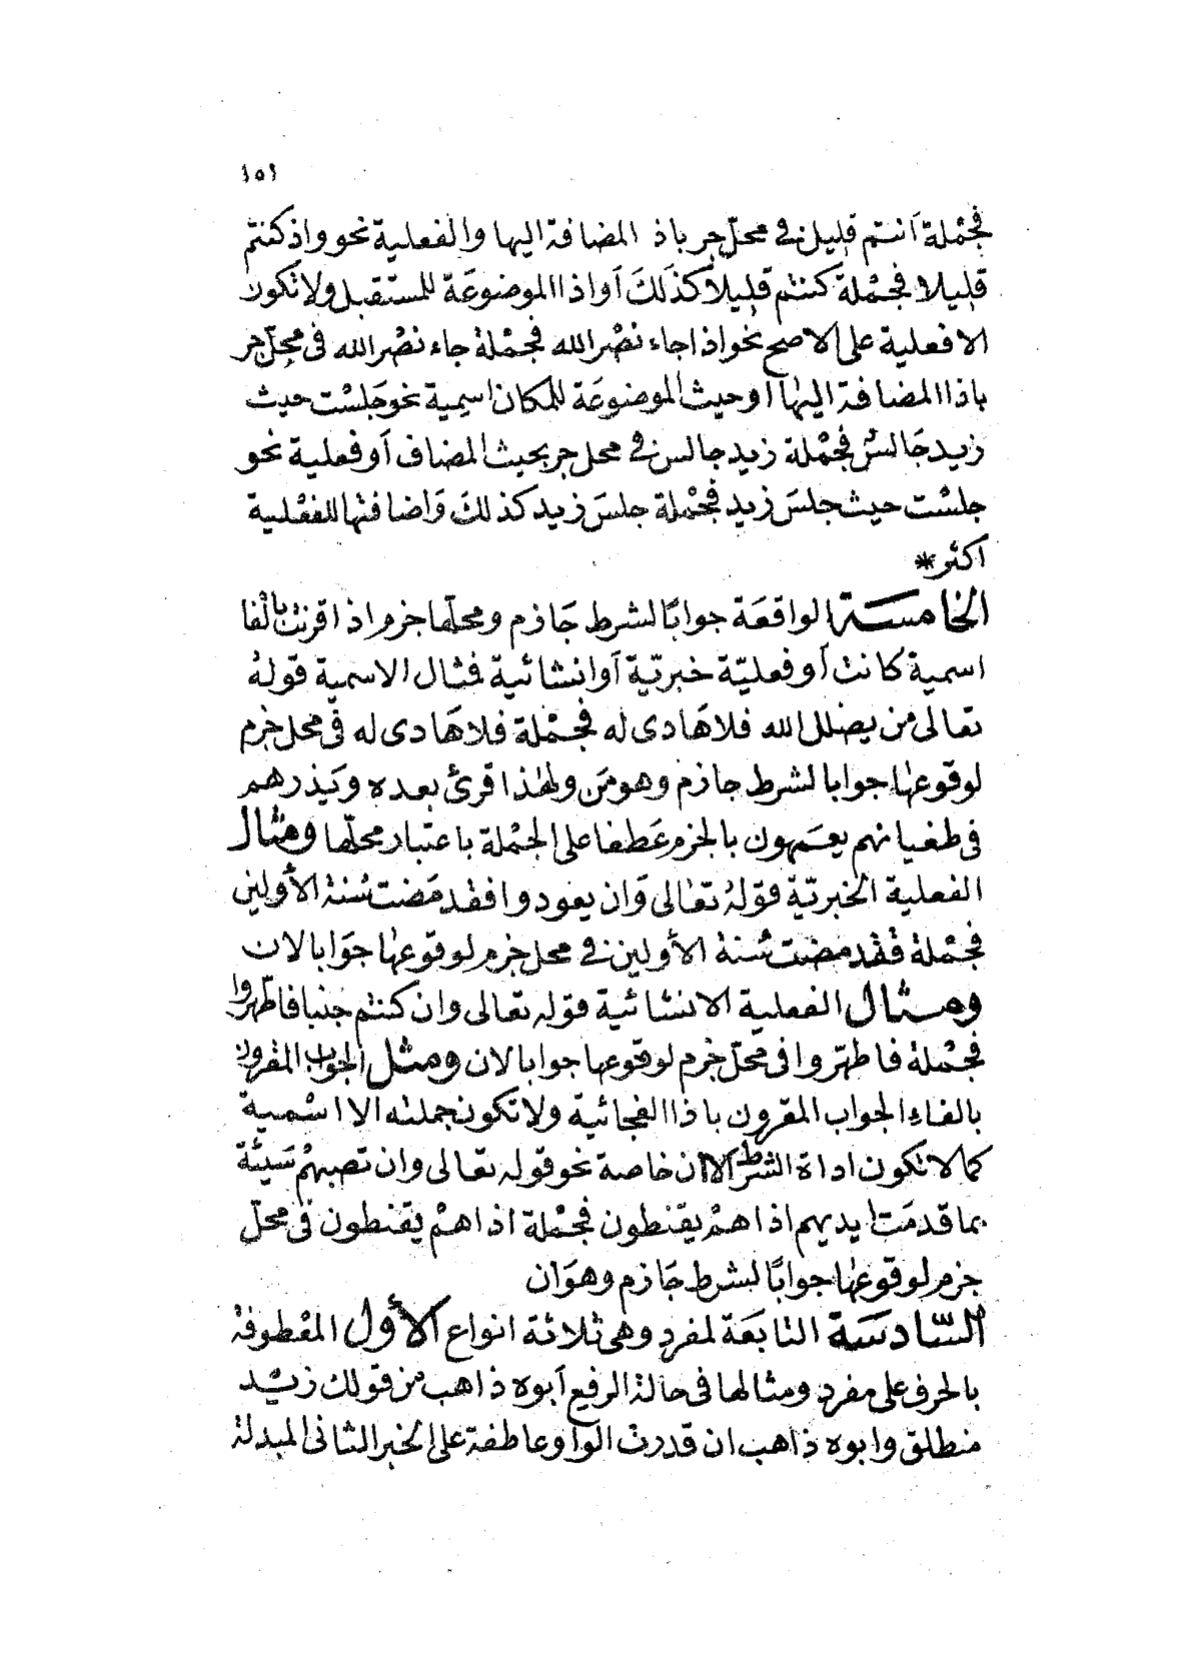 ١٥١
فجْملة أنتم قليل في محلّ جر باذ المضافة اليها والفعلية نحو واذ كنتم
قليلا فجْملة كنتم قليلاً كذلكَ أواذا الموضوعَة للمستقبل ولا تكون
الا فعلية على الاصح نحو اذا جاء نصْر الله فجْملة جاء نصْر الله فى محلّ جر
باذا المضافة اليها أو حيث الموضوعَة للمكان اسمية نحو جَلسْت حيث
زيد جَالس فجْملة زيد جالس في محل جر بحيث المضاف أو فعلية نحو
جلسْت حيث جلسَ زيد فجْملة جلسَ زيد كذلكَ وَاضافتها للفعْلية
أكثر*
الخامسَة الواقعَة جوابًا لشرط جَازم ومحلّها جزم اذا قرنت بالْفا
اسمية كانت أو فعليّة خبريّة أو انشائية فمثال الاسمية قولهُ
تعالى من يضلل الله فلا هَادى له فجْملة فلا هَادى له فى محل جزم
لوقوعها جوابا لشرط جازم وهو مَن ولهذا قرئ بعده وَيذرهم
فى طغيانهم يعمَهون بالجزم عَطفا على الجمْلة باعتبار محلّها ومثال
الفعلية الخبريّة قولهُ تعالى وَان يعودوا فقد مَضت سُنة الأولين
فجْملة فقد مضت سُنة الأولين في محل جزم لوقوعها جوَابا لان
ومثال الفعلية الانشائية قوله تعالى وان كنتم جنبا فاطّهروا
فجْملة فاطهّروا فى محلّ جزم لوقوعها جوابا لان ومثل الجواب المقرون
بالفاء الجواب المقرون باذا الفجائية ولا تكون جملته الا اسْمية
كما لا تكون اداة الشرْط الا ان خاصة نحو قوله تعالى وان تصبهمْ سَيئة
بما قدمَت ايديهم اذا همْ يقنطون فجْملة اذا همْ يقنطون فى محلّ
جزم لوقوعها جوابًا لشرط جَازم وهوَ ان
السّادسَة التابعَة لمفرد وهى ثلاثة انواع الأول المعْطوفة
بالحرف على مفرد ومثالها فى حالة الرفع أبوه ذاهب من قولك زيْد
منطلق وابوه ذاهب ان قدرت الواو عاطفة على الخبر الثانى المبدلة